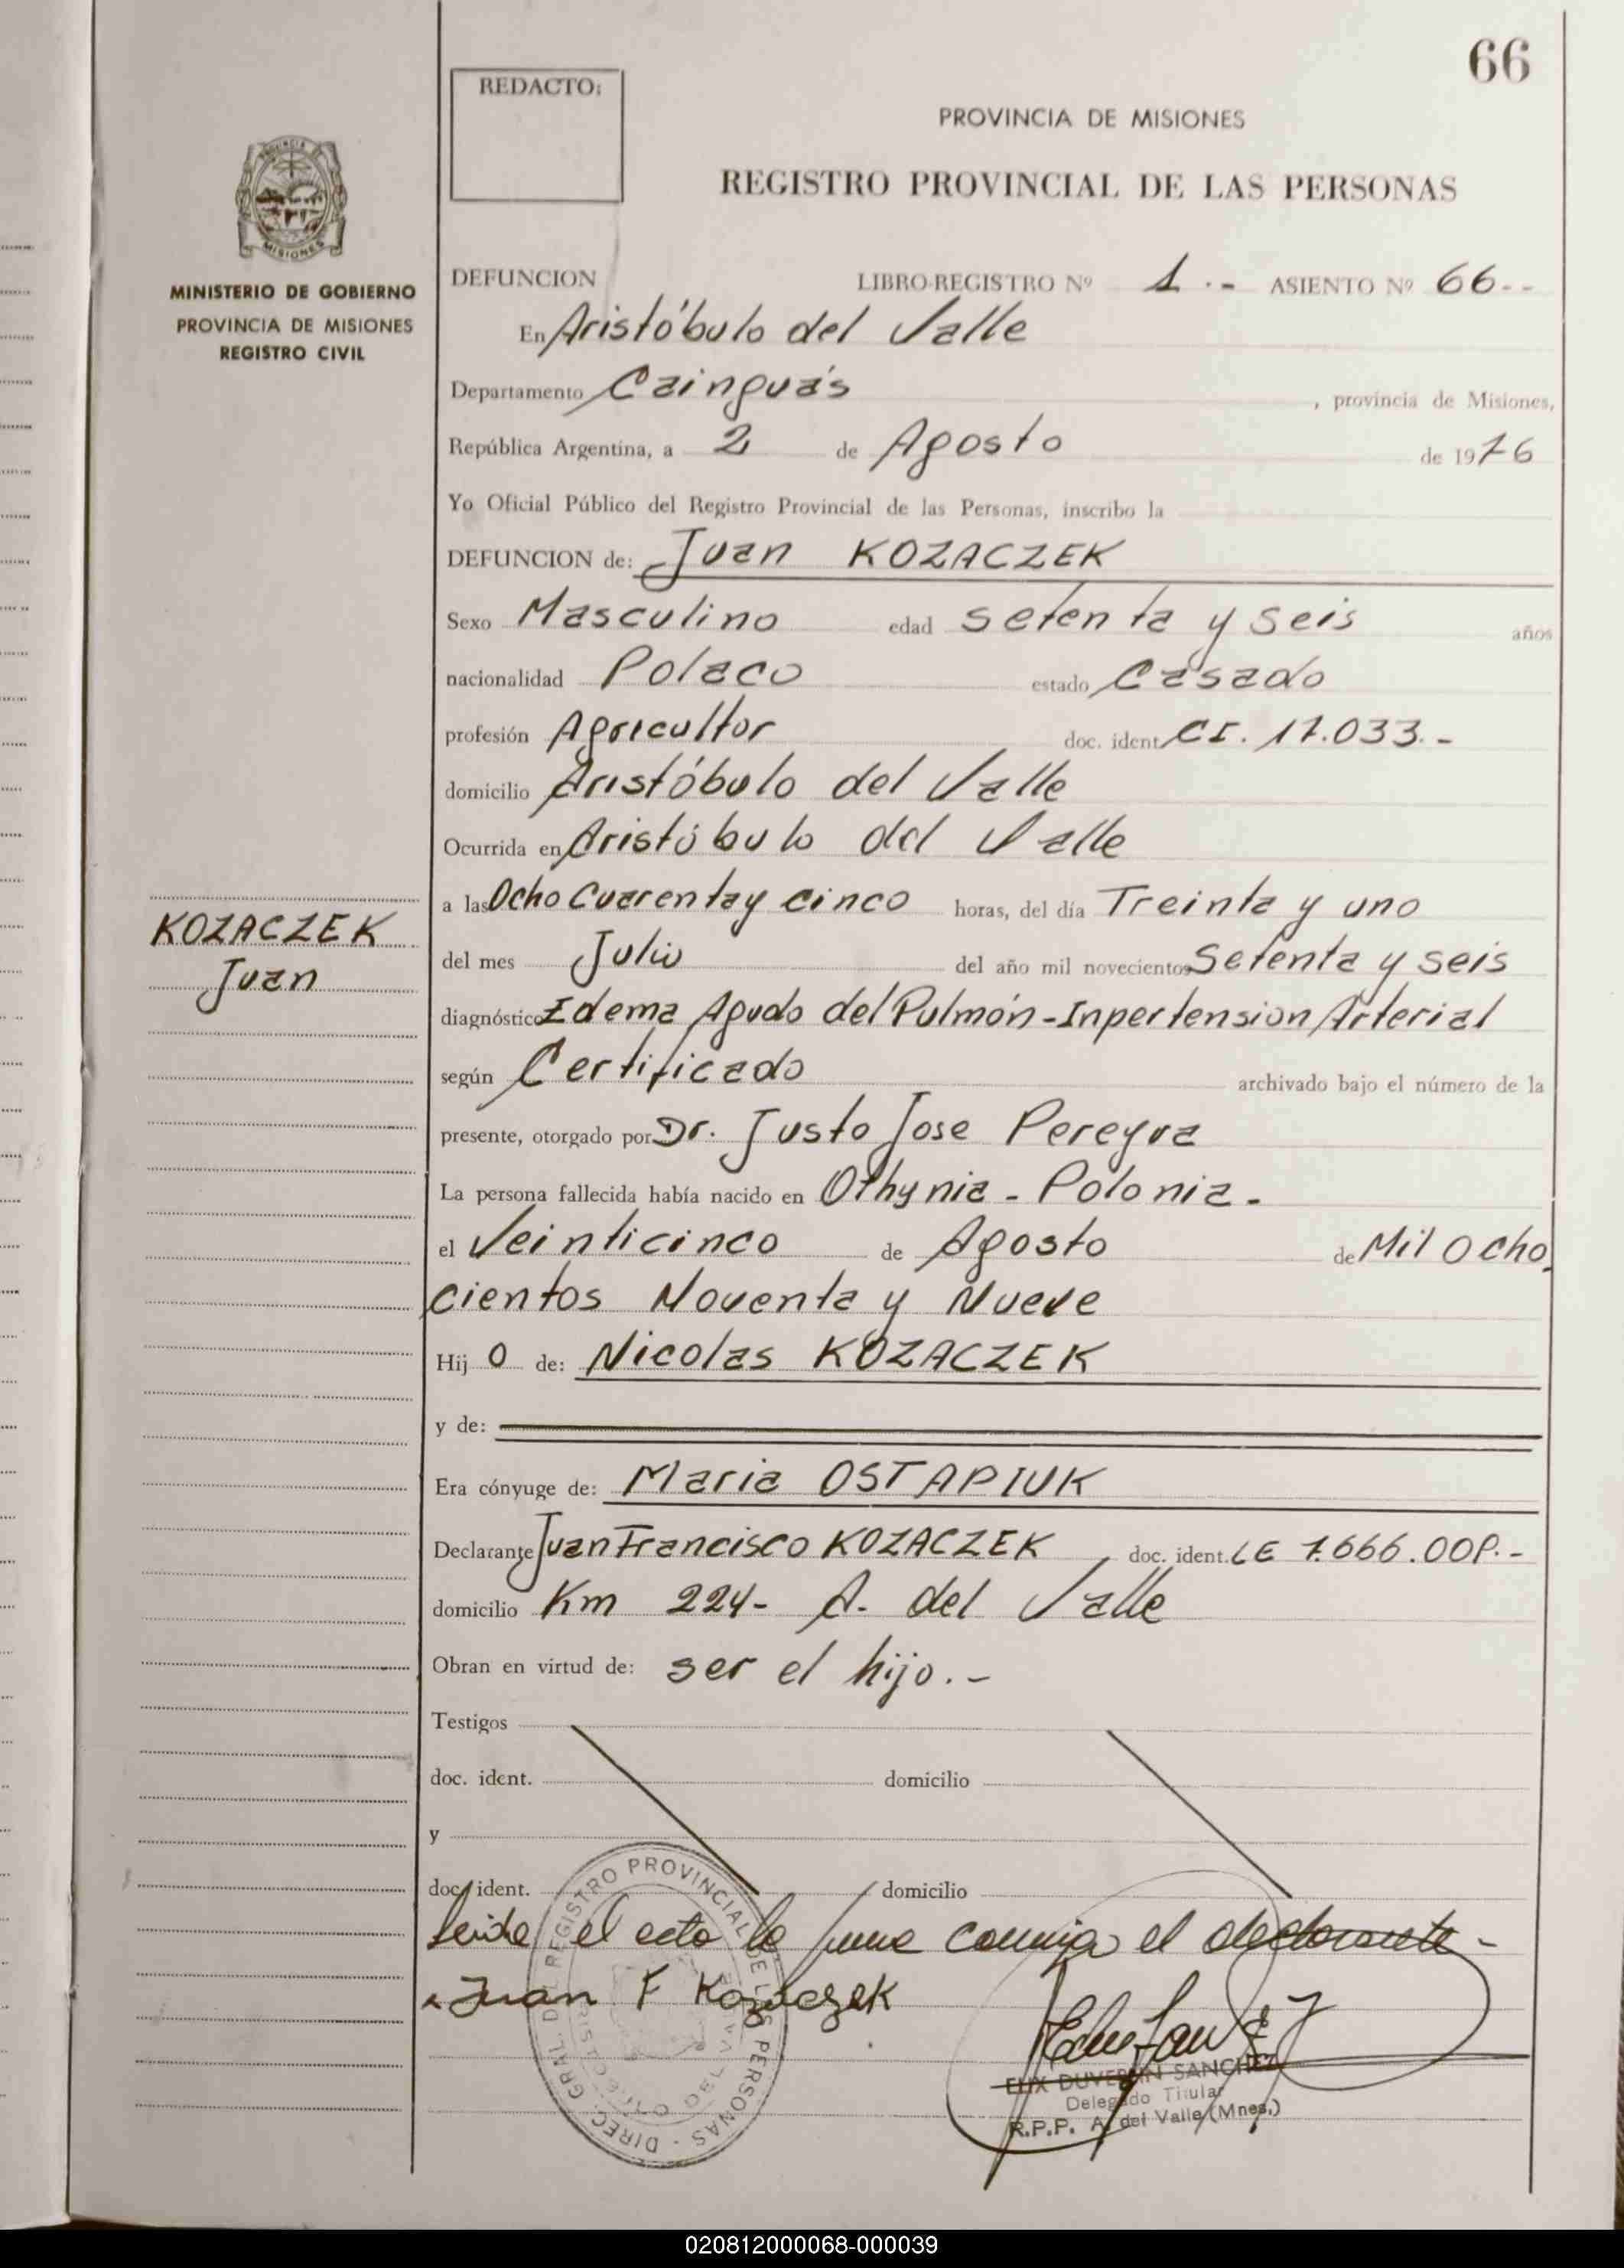 66
REDACTO:
PROVINCIA DE MISIONES
REGISTRO PROVINCIAL DE LAS PERSONAS
MISIONES
MINISTERIO DE GOBIERNO
PROVINCIA DE MISIONES
REGISTRO CIVIL
DEFUNCION LIBRO-REGISTRO Nº 1.- ASIENTO Nº 66--
En Aristóbulo del Valle
Departamento Cainguás, provincia de Misiones,
República Argentina, a 2 de Agosto de 1976
Yo Oficial Público del Registro Provincial de las Personas, inscribo la
DEFUNCION de: Juan KOZACZEK
Sexo Masculino edad setenta y seis años
nacionalidad Polaco estado Casado
profesión Agricultor doc. ident. CI. 17.033.-
domicilio Aristóbulo del Valle
Ocurrida en Aristóbulo del Valle
a las Ocho Cuarenta y cinco horas, del día Treinta y uno
KOZACZEK
Juan
del mes Julio del año mil novecientos Setenta y seis
diagnóstico Edema Agudo del Pulmón - Inpertension Arterial
según Certificado archivado bajo el número de la
presente, otorgado por Dr. Justo Jose Pereyra
La persona fallecida había nacido en Othynia - Polonia -
el Veinticinco de Agosto de Mil Ocho
cientos Noventa y Nueve
Hij o de: Nicolas KOZACZEK
y de:
Era cónyuge de: Maria OSTAPIUK
Declarante Juan Francisco KOZACZEK, doc. ident. LE
domicilio Km 224- A. del Valle
Obran en virtud de: ser el hijo.-
Testigos
doc. ident. domicilio
y
doc. ident. domicilio
Leida el acta la firma conmigo el declarante -
Juan F Kozaczek
DIREC. GRAL. DEL REGISTRO PROVINCIAL DE LAS PERSONAS
DUVERAN SANCHEZ
Delegado Titular
R.P.P. A. del Valle (Mnes.)
020812000068-000039